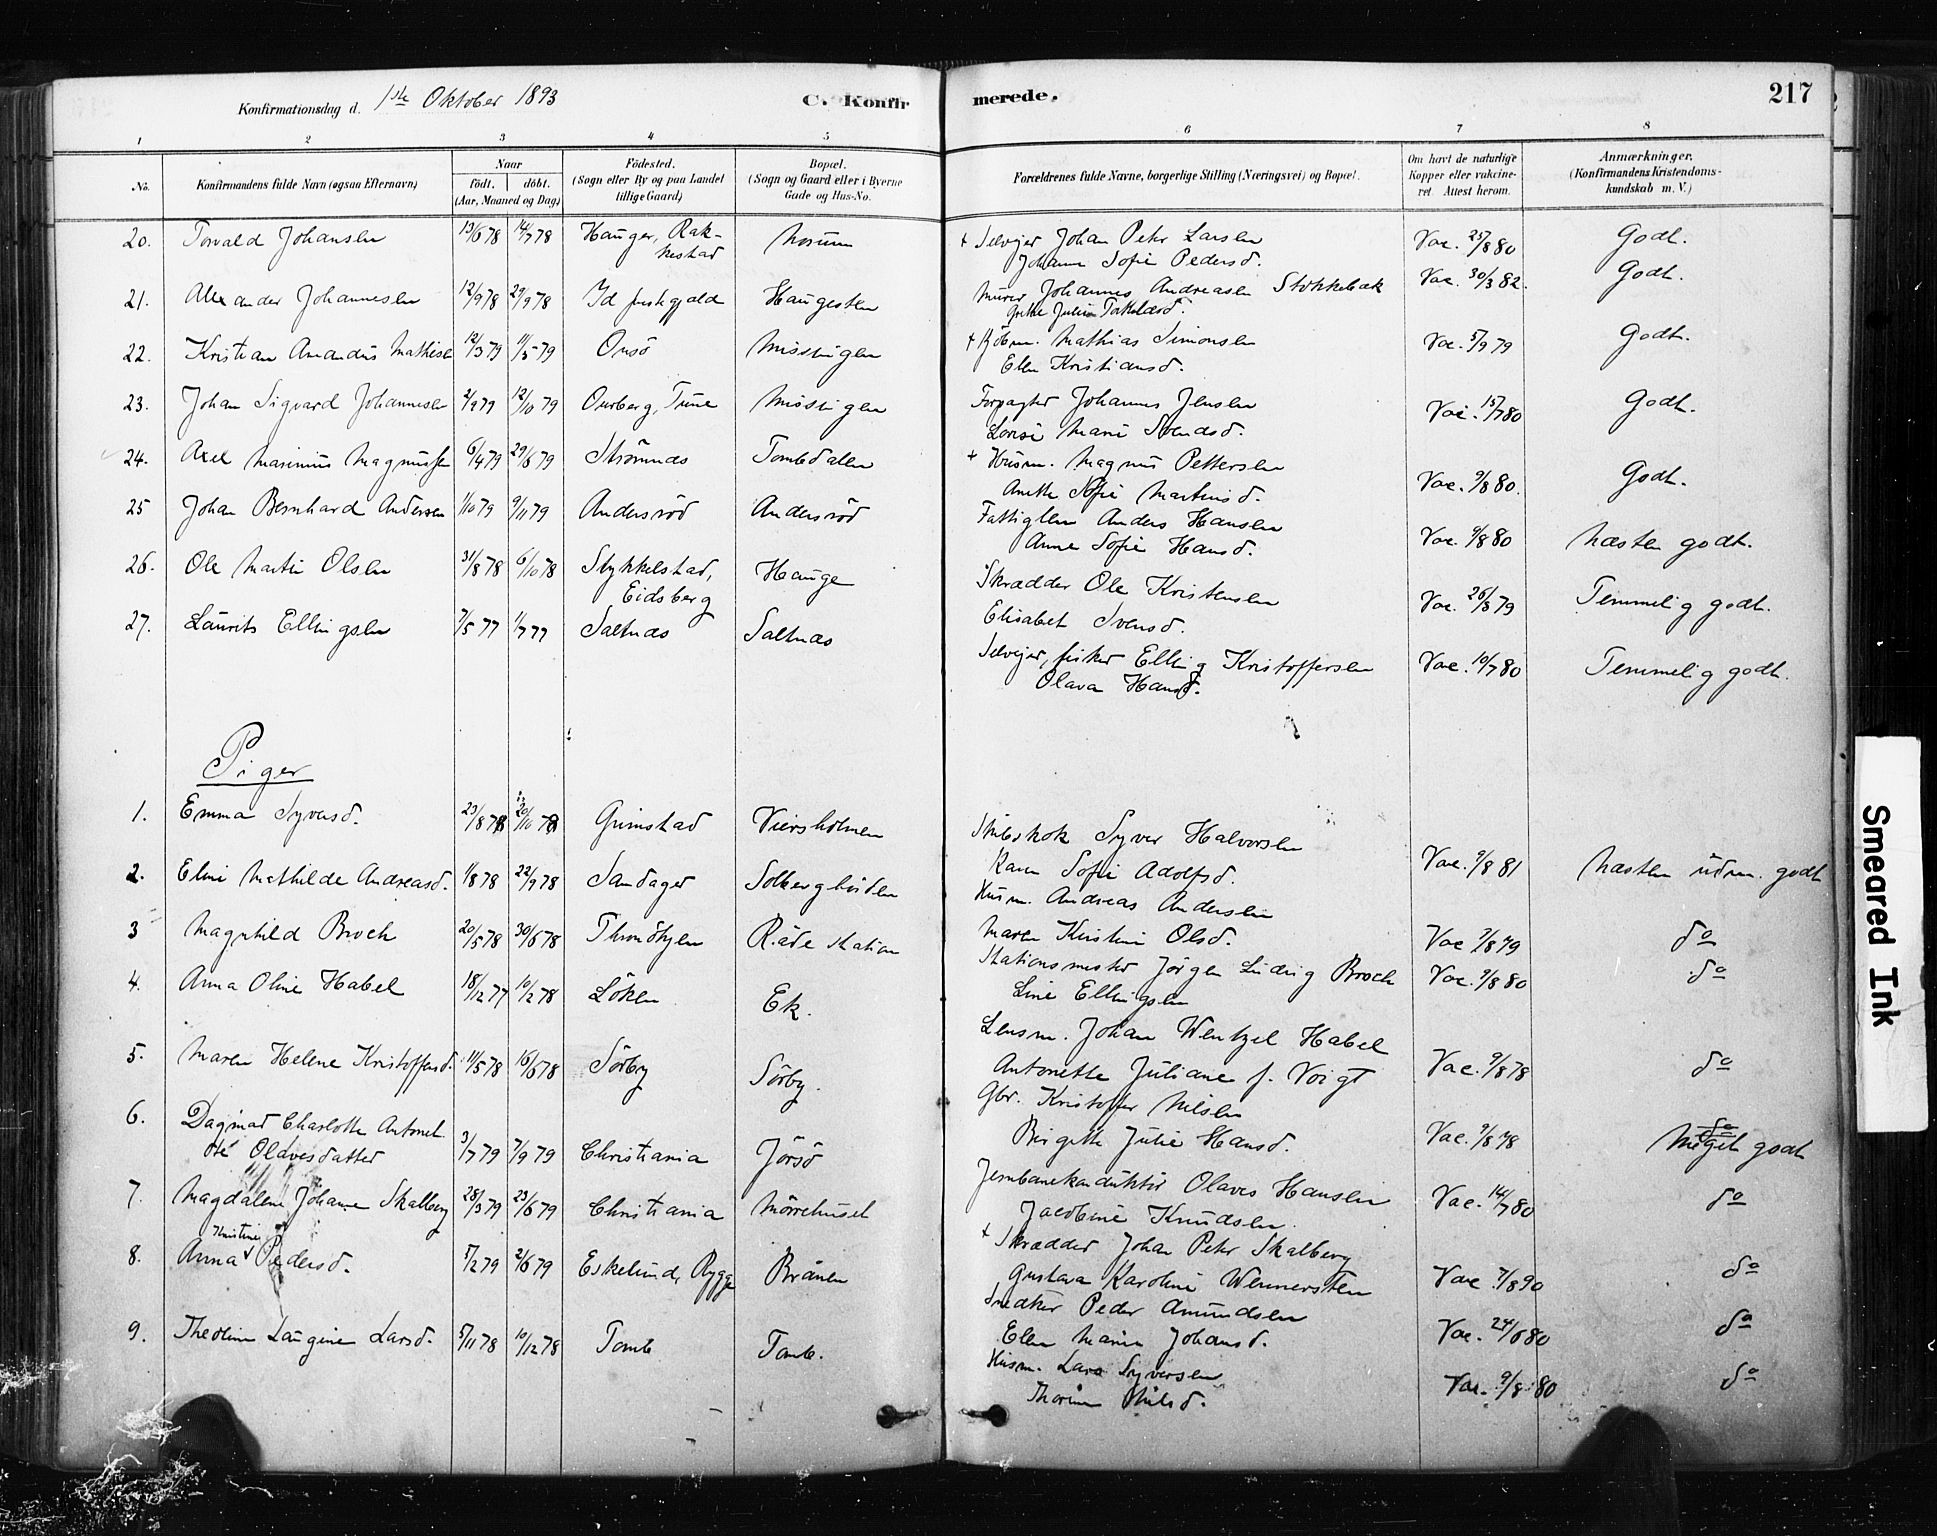 Konfirmationsdag d. 1ste Oktober 1893
C. Konfirmerede.
217
1 2 3 4 5 6 7 8
No.
Konfirmandens fulde Navn (ogsaa Efternavn)
Naar
födt. döbt.
(Aar, Maaned og Dag)
Födested.
(Sogn eller By og paa Landet
tillige Gaard)
Bopæl.
(Sogn og Gaard eller i Byerne
Gade og Hus-No.
Forældrenes fulde Navne, borgerlige Stilling (Næringsvei) og Bopæl.
Om havt de naturlige
Kopper eller vakcine-
ret. Attest herom.
Anmærkninger.
(Konfirmandens Kristendoms-
kundskab m. V.)
20. Torvald Johansen 13/6 78 14/7 78 Hauger, Rak- Mosum + Selvejer Johan Peter Larsen Vac. 25/8 80 Godt.
kestad Johanne Sofie Pedersd.
21. Alexander Johannesen 12/9 78 29/9 78 Id præstegjeld Haugesten Murer Johannes Andreasen Stokkebæk Vac. 30/3 82. Godt.
Grethe Juline Torkelsd.
22. Kristian Amandus Mathisen 12/3 79 11/5 79 Onsö Missingen + Mathias Simonsen Vac. 5/9 79 Godt.
Elen Kristiansd.
23. Johan Sigvard Johannesen 2/9 79 12/10 79 Ourberg, Tune Missingen Forpagter Johannes Jensen Vac. 15/7 80 Godt.
Lovise Marie Svendsd.
24. Axel Marinius Magnussen 6/4 79 29/6 79 Strömnæs Tombdalen + Husm. Magnus Pettersen Vac. 9/8 80. Godt.
Anette Sofie Martinsd.
25 Johan Bernhard Andersen 1/10 79 9/11 79 Andersröd Andersröd Fattiglem Anders Hansen Vac. 9/8 80 Næsten godt.
Anne Sofie Hansd.
26. Ole Martin Olsen 31/8 78 6/10 78 Stykkelstad, Hauge Skrædder Ole Kristensen Vac. 26/8 79 Temmelig godt.
Eidsberg Elisabet Svensd.
27. Laurits Ellingsen 7/5 77 1/7 77 Saltnæs Saltnæs Selvejer, fisker Elling Kristoffersen Vac. 10/7 80 Temmelig godt.
Olava Hansd.
Piger
1. Emma Syversd. 23/8 78 20/10 78 Grimstad Viersholmen Skibskok Syver Halvorsen Vac. 9/8 81 Næsten udm. godt
Karen Sofie Adolfsd.
2. Eline Mathilde Andreasd. 1/8 78 22/9 78 Sandager Solbergbråten Husm. Andreas Andersen Vac 7/8 79 do
Maren Kristine Olsd.
3 Magnhild Broch 20/5 78 30/6 78 Thronöhjem Råde station Stationsmester Jörgen Ludvig Broch Vac. 9/8 80 do
Line Ellingsen
4. Anna Oline Habel 18/12 77 10/2 78 Löken Ek. Lensm. Johan Wentzel Habel Vac. 9/8 78 do
Antonette Juliane f. Voigt
5. Maren Helene Kristoffersd. 11/5 78 16/6 78 Sörby Sörby. Gbr. Kristoffer Nilsen Vac. 9/8 78 do Meget godt
Birgitte Julie Hansd.
6. Dagmar Charlotte Antonet-
te Olavesdatter 3/7 79 7/9 79 Christiania Jörsö Jernbanekonduktör Olaves Hansen Vac. 14/7 80 do
Jacobine Knudsen.
7. Magdalene Johanne Skalberg 28/3 79 23/6 79 Christiania Mörrehuset + Skrædder Johan Peter Skalberg Vac 7/8 90 do
Gustava Karoline Wennersten
8. Anna Kristine Pedersd. 5/2 79 2/6 79 Eskelund, Rygge Brånen Snedker Peder Amundsen Vac. 24/6 80 do
Elen Marie Johansd.
9. Theoline Laugine Larsd. 5/11 78 10/12 78 Tomb Tomb. Husm. Lars Syversen Vac. 9/8 80 do
Thorine Nilsd.
Smeared Ink